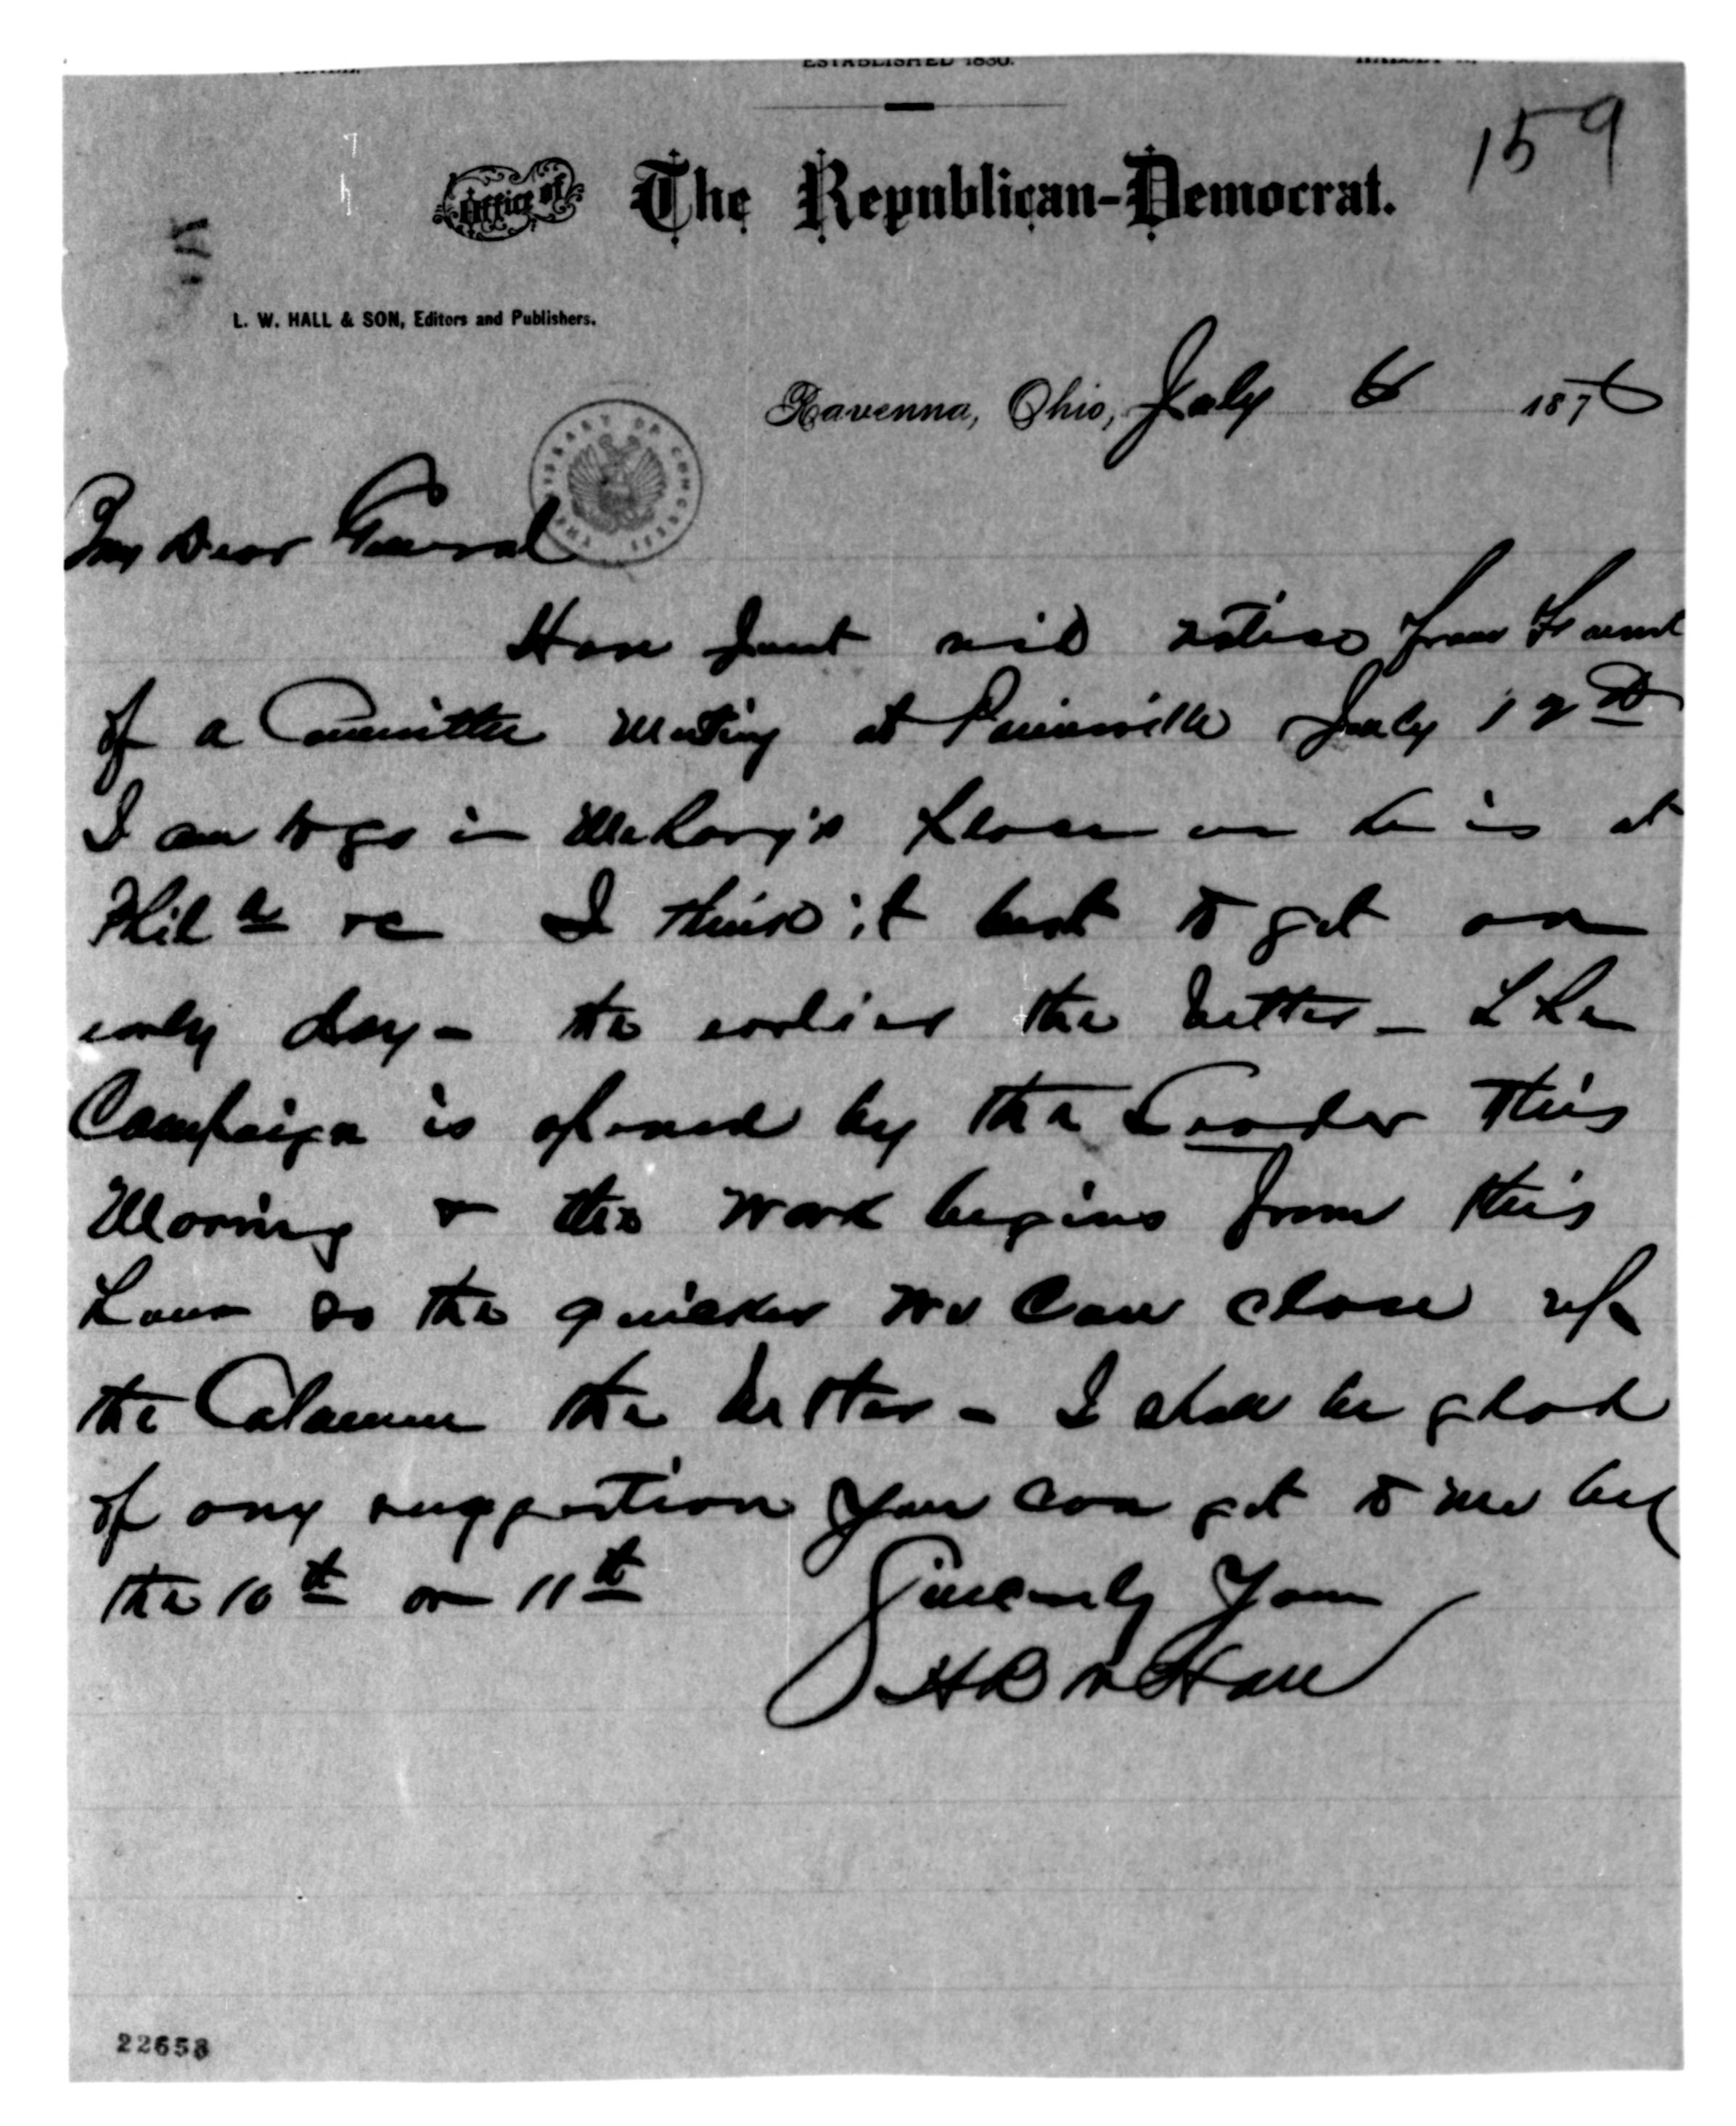 ESTABLISHED 1830.
159
Office of The Republican-Democrat.
L. W. HALL & SON, Editors and Publishers.
Ravenna, Ohio, July 6 1876
THE LIBRARY OF CONGRESS
My Dear General
Have just recd notice from
of a Committee Meeting at Painesville July 12th
I am to go in place as he is at
Phila I think it best to get an
early day - the earlier the better - The
Campaign is opened by the Leader this
Morning & the work begins from this
hour so the quicker we can close up
the Column the better - I shall be glad
of any suggestion you can get to me by
the 10th or 11th Sincerely Yours
Hall
22653